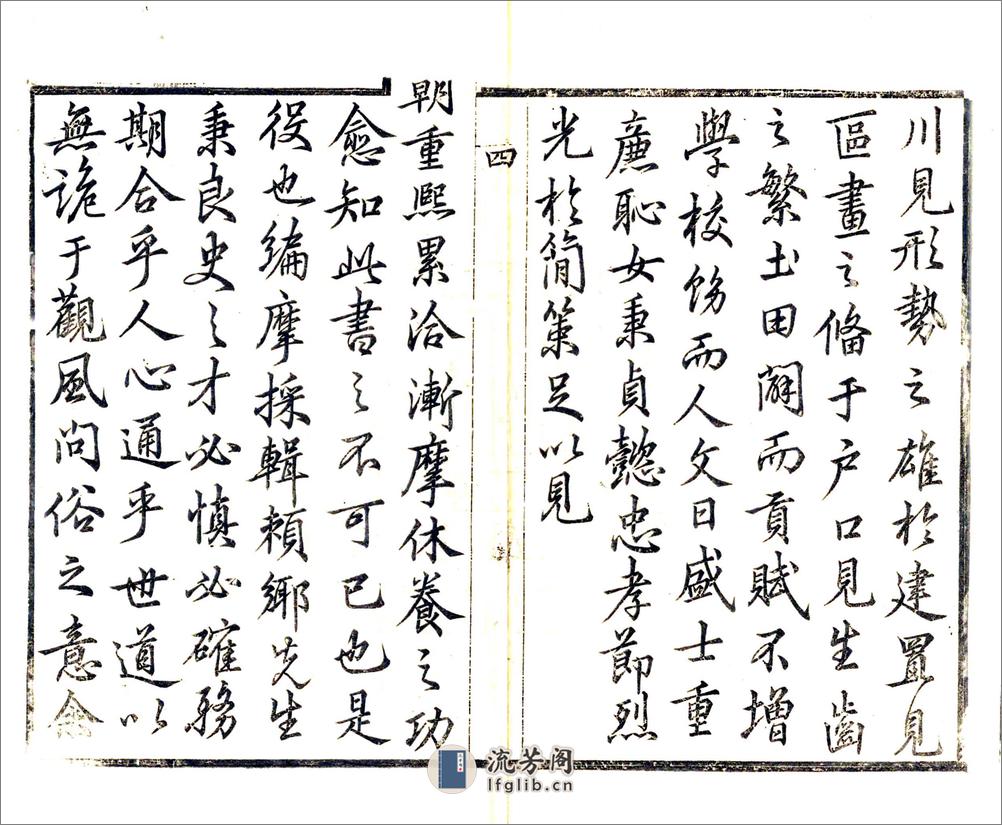 川見形勢之雄於建置見
區畫之備于戶口見生齒
之繁土田闢而貢賦不增
學校飭而人文日盛士重
廉恥女秉貞懿忠孝節烈
光於簡策足以見
四
朝重熙累洽漸摩休養之功
愈知此書之不可已也是
役也編摩採輯賴鄉先生
秉良史之才必慎必確務
期合乎人心通乎世道以
無詭于觀風問俗之意僉
流芳阁
lfglib.cn